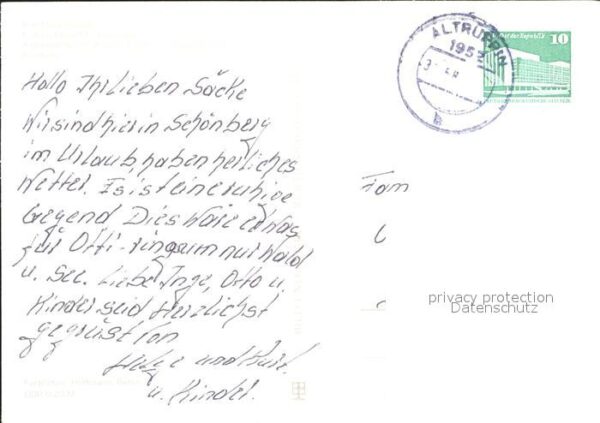 ALTRUPPIN
1953
b
10
Hallo Ihr Lieben Säcke
Wir sind hier in Schönberg
im Urlaub haben herliches
Wetter. Es ist eine ruhige
Gegend Dies wäre etwas
für Otti - ringsum nur Wald
u. See. Liebe Inge, Otto u.
Kinder seid Herzlichst
gegrüßt von
Helge und Kurt
u. Kinder.
Fam
privacy protection
Datenschutz